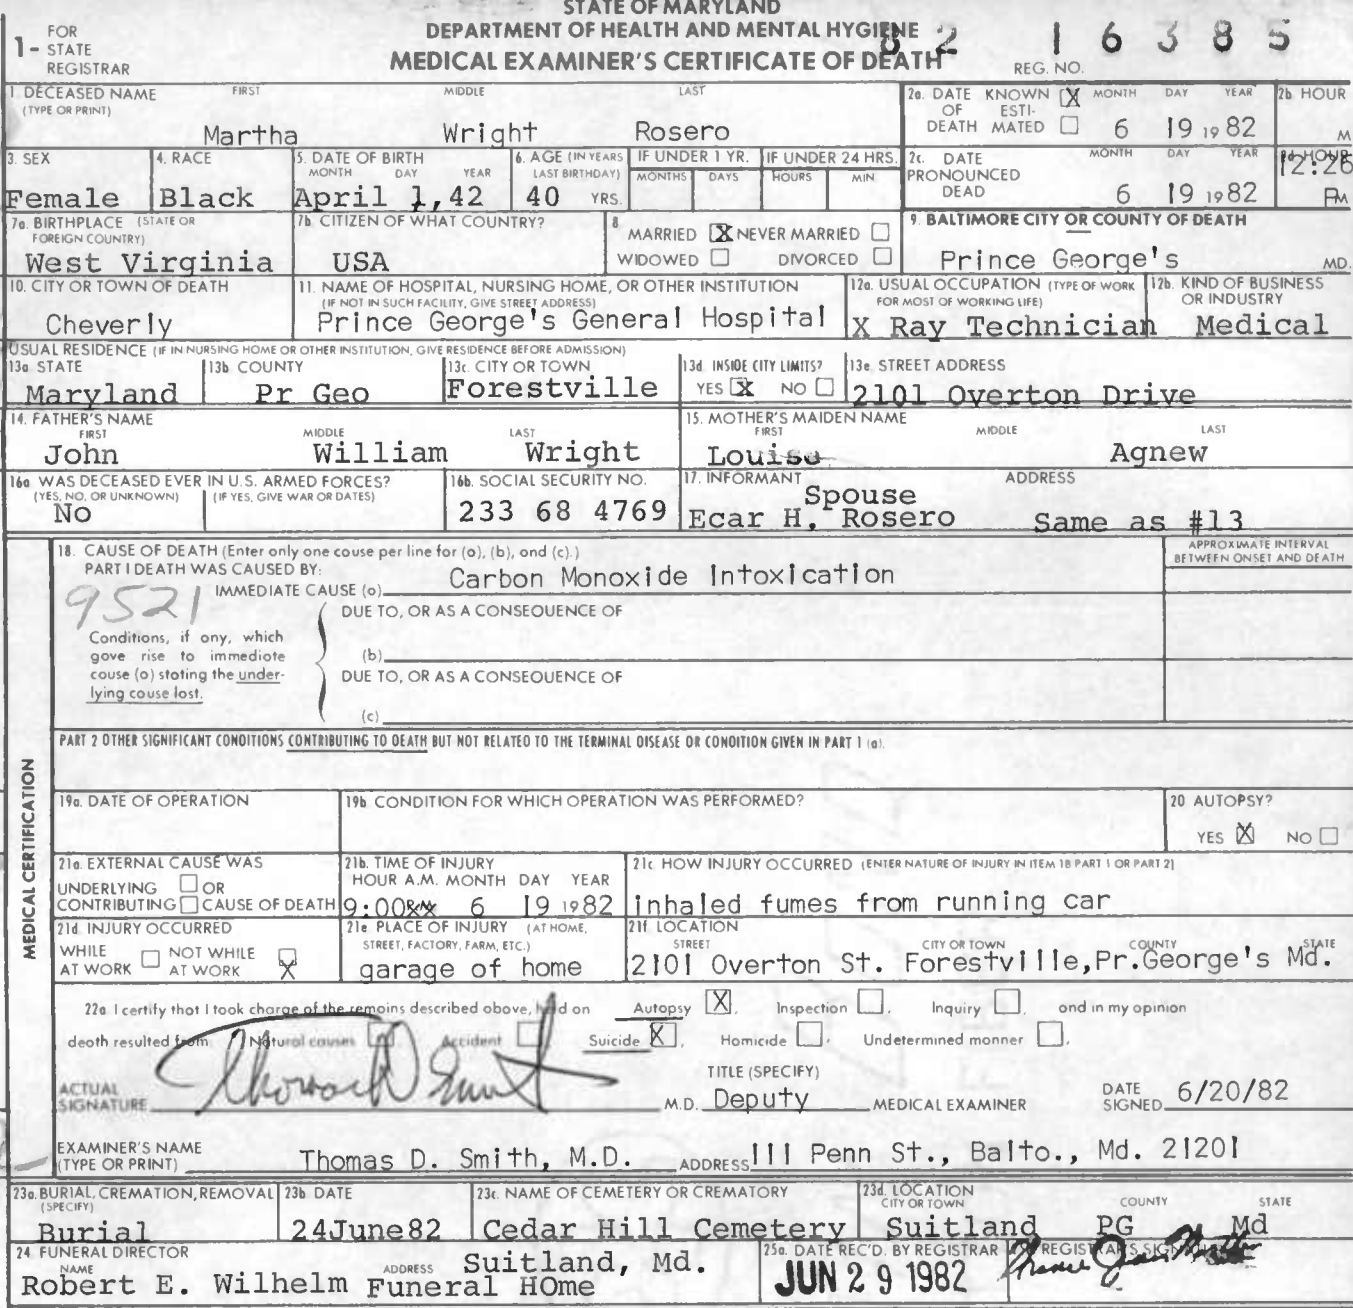 STATE OF MARYLAND
FOR DEPARTMENT OF HEALTH AND MENTAL HYGIENE 82 16385
1- STATE REGISTRAR MEDICAL EXAMINER'S CERTIFICATE OF DEATH REG. NO.
1. DECEASED NAME (TYPE OR PRINT) FIRST MIDDLE LAST
Martha Wright Rosero
2a. DATE OF DEATH KNOWN X ESTIMATED MONTH DAY YEAR
6 19 1982
2b. HOUR M
3. SEX
Female
4. RACE
Black
5. DATE OF BIRTH MONTH DAY YEAR
April 1, 42
6. AGE (IN YEARS LAST BIRTHDAY)
40 YRS.
IF UNDER 1 YR. MONTHS DAYS
IF UNDER 24 HRS. HOURS MIN.
2c. DATE PRONOUNCED DEAD MONTH DAY YEAR
6 19 1982
HOUR
12:26 PM
7a. BIRTHPLACE (STATE OR FOREIGN COUNTRY)
West Virginia
7b. CITIZEN OF WHAT COUNTRY?
USA
8. MARRIED X NEVER MARRIED
WIDOWED DIVORCED
9. BALTIMORE CITY OR COUNTY OF DEATH
Prince George's MD.
10. CITY OR TOWN OF DEATH
Cheverly
11. NAME OF HOSPITAL, NURSING HOME, OR OTHER INSTITUTION
(IF NOT IN SUCH FACILITY, GIVE STREET ADDRESS)
Prince George's General Hospital
12a. USUAL OCCUPATION (TYPE OF WORK FOR MOST OF WORKING LIFE)
X Ray Technician
12b. KIND OF BUSINESS OR INDUSTRY
Medical
USUAL RESIDENCE (IF IN NURSING HOME OR OTHER INSTITUTION, GIVE RESIDENCE BEFORE ADMISSION)
13a. STATE
Maryland
13b. COUNTY
Pr Geo
13c. CITY OR TOWN
Forestville
13d. INSIDE CITY LIMITS?
YES X NO
13e. STREET ADDRESS
2101 Overton Drive
14. FATHER'S NAME
FIRST MIDDLE LAST
John William Wright
15. MOTHER'S MAIDEN NAME
FIRST MIDDLE LAST
Louise Agnew
16a. WAS DECEASED EVER IN U.S. ARMED FORCES?
(YES, NO, OR UNKNOWN) (IF YES, GIVE WAR OR DATES)
No
16b. SOCIAL SECURITY NO.
233 68 4769
17. INFORMANT ADDRESS
Spouse
Ecar H. Rosero Same as #13
18. CAUSE OF DEATH (Enter only one cause per line for (a), (b), and (c).)
APPROXIMATE INTERVAL BETWEEN ONSET AND DEATH
PART I DEATH WAS CAUSED BY:
IMMEDIATE CAUSE (a) Carbon Monoxide Intoxication
9521
DUE TO, OR AS A CONSEQUENCE OF
Conditions, if any, which
gave rise to immediate
cause (a) stating the under-
lying cause last.
(b)
DUE TO, OR AS A CONSEQUENCE OF
(c)
PART 2 OTHER SIGNIFICANT CONDITIONS CONTRIBUTING TO DEATH BUT NOT RELATED TO THE TERMINAL DISEASE OR CONDITION GIVEN IN PART 1 (a).
MEDICAL CERTIFICATION
19a. DATE OF OPERATION
19b. CONDITION FOR WHICH OPERATION WAS PERFORMED?
20 AUTOPSY?
YES X NO
21a. EXTERNAL CAUSE WAS
UNDERLYING OR
CONTRIBUTING CAUSE OF DEATH
21b. TIME OF INJURY
HOUR A.M. MONTH DAY YEAR
9:00 6 19 1982
21c. HOW INJURY OCCURRED (ENTER NATURE OF INJURY IN ITEM 18 PART 1 OR PART 2)
inhaled fumes from running car
21d. INJURY OCCURRED
WHILE AT WORK NOT WHILE AT WORK X
21e. PLACE OF INJURY (AT HOME, STREET, FACTORY, FARM, ETC.)
garage of home
21f. LOCATION
STREET CITY OR TOWN COUNTY STATE
2101 Overton St. Forestville, Pr.George's Md.
22a. I certify that I took charge of the remains described above, held on Autopsy X, Inspection, Inquiry, and in my opinion
death resulted from: Natural causes, Accident, Suicide X, Homicide, Undetermined manner.
ACTUAL SIGNATURE M.D.
TITLE (SPECIFY)
Deputy MEDICAL EXAMINER
DATE SIGNED 6/20/82
EXAMINER'S NAME (TYPE OR PRINT) Thomas D. Smith, M.D. ADDRESS 111 Penn St., Balto., Md. 21201
23a. BURIAL, CREMATION, REMOVAL (SPECIFY)
Burial
23b. DATE
24June82
23c. NAME OF CEMETERY OR CREMATORY
Cedar Hill Cemetery
23d. LOCATION
CITY OR TOWN COUNTY STATE
Suitland PG Md
24. FUNERAL DIRECTOR
NAME ADDRESS
Robert E. Wilhelm Funeral HOme Suitland, Md.
25a. DATE REC'D. BY REGISTRAR
JUN 29 1982
REGISTRAR'S SIGNATURE